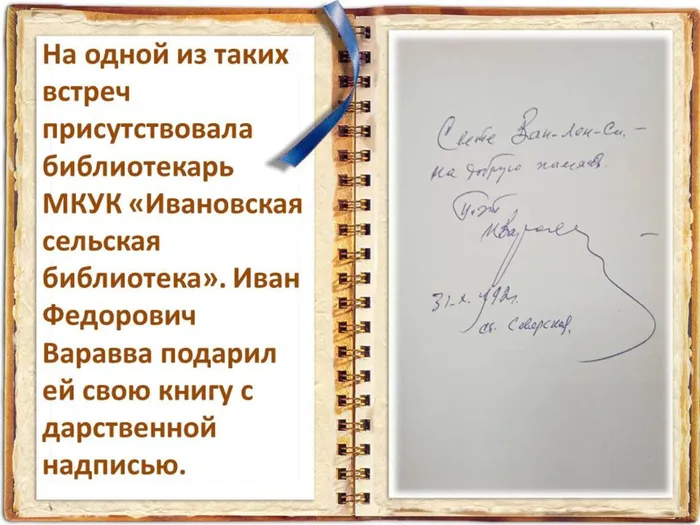 На одной из таких
встреч
присутствовала
библиотекарь
МКУК «Ивановская
сельская
библиотека». Иван
Федорович
Варавва подарил
ей свою книгу с
дарственной
надписью.
Свете Ван-Лен-Си. –
на добрую память.
31-X.
ст. Северская,